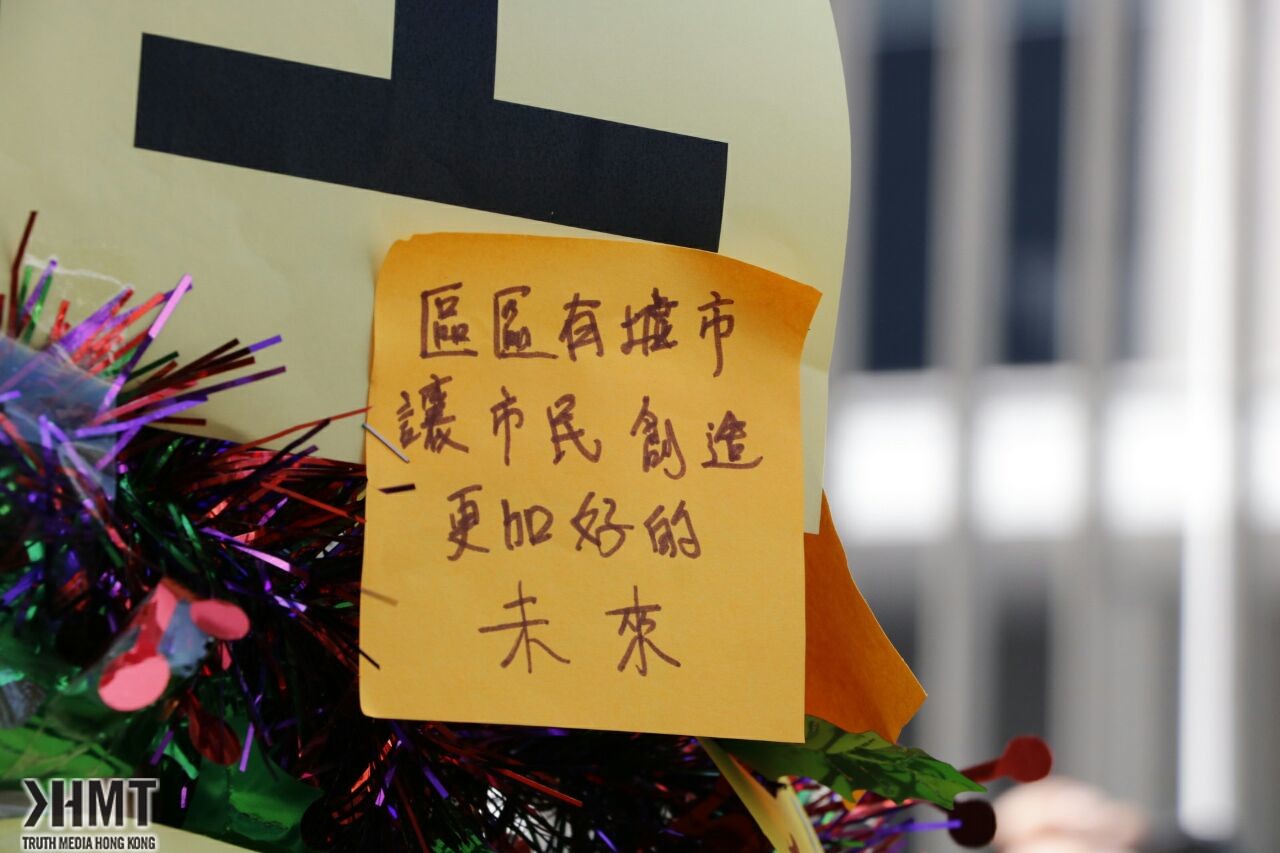 區區有墟市
讓市民創造
更加好的
未來
HMT
TRUTH MEDIA HONG KONG